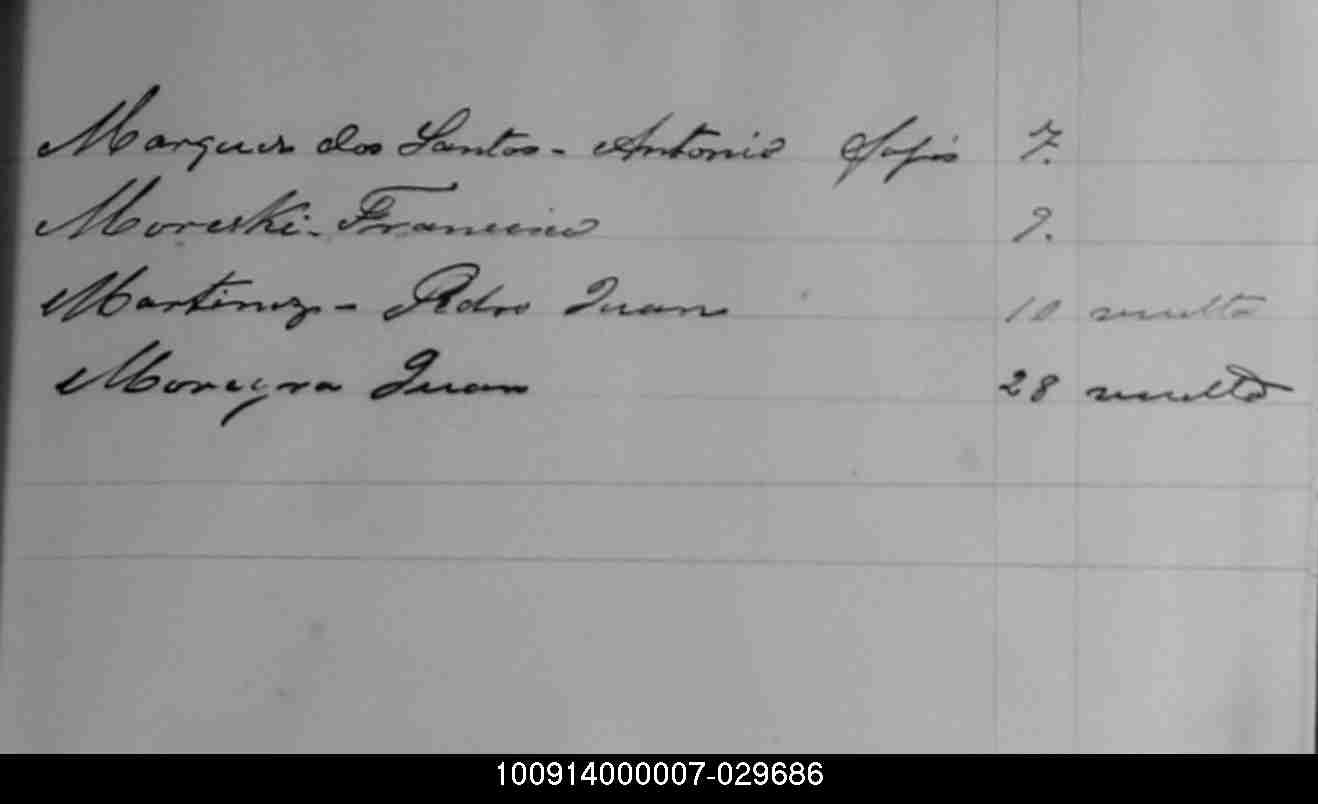 Marques dos Santos - Antonio fojas 7.
Moreski - Francisco 9.
Martinez - Pedro Juan 10 vuelta
Moreyra Juan 28 vuelta
100914000007-029686